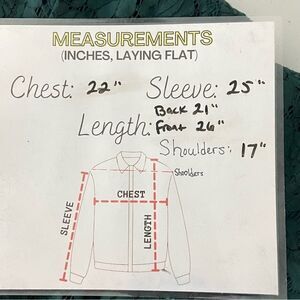 MEASUREMENTS
(INCHES, LAYING FLAT)
Chest: 22" Sleeve: 25"
Back 21"
Length: Front 26"
Shoulders: 17"
Shoulders
CHEST
SLEEVE
LENGTH